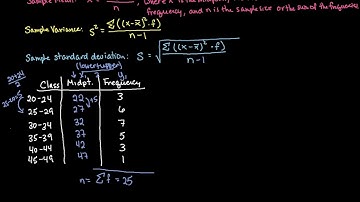 Sample mean: x̄ = , where x is the midpoint,
n frequency, and n is the sample size or the sum of the frequencies
Sample Variance: s² = Σ((x-x̄)²·f)
n-1
Sample standard deviation: S = √Σ((x-x̄)²·f)
(lower+upper) n-1
20+24
2
Class Midpt. Frequency
20-24 22 3
25-29 27 6
30-34 32 7
35-39 37 5
40-44 42 3
45-49 47 1
n = Σf = 25